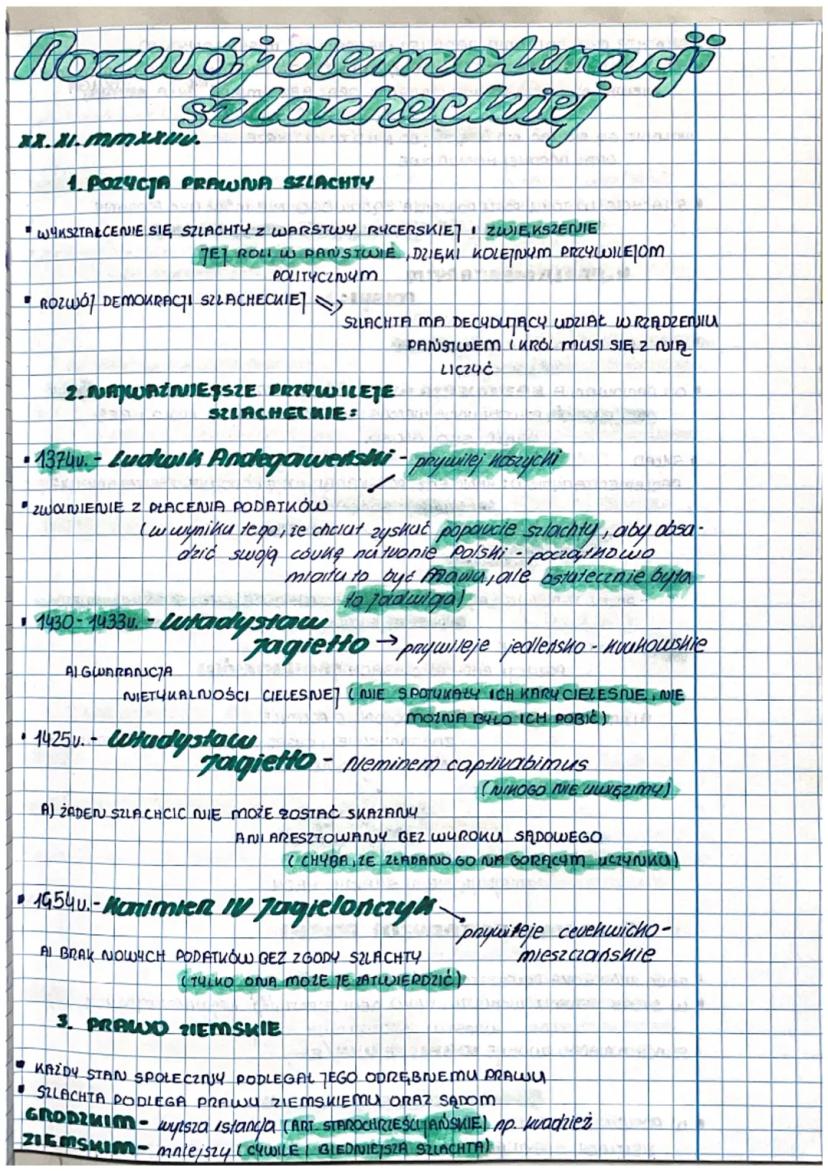 Rozwój demokracji
szlacheckiej
XX. XI. MMXXIIr.
1. POZYCJA PRAWNA SZLACHTY
▪ WYKSZTAŁCENIE SIĘ SZLACHTY Z WARSTWY RYCERSKIEJ I ZWIĘKSZENIE
JEJ ROLI W PAŃSTWIE, DZIĘKI KOLEJNYM PRZYWILEJOM
POLITYCZNYM
▪ ROZWÓJ DEMOKRACJI SZLACHECKIEJ ⇒
SZLACHTA MA DECYDUJĄCY UDZIAŁ W RZĄDZENIU
PAŃSTWEM I KRÓL MUSI SIĘ Z NIĄ
LICZYĆ
2. NAJWAŻNIEJSZE PRZYWILEJE
SZLACHECKIE:
▪ 1374r. - Ludwik Andegaweński - przywilej koszycki
▪ ZWOLNIENIE Z PŁACENIA PODATKÓW
(w wyniku tego, że chciał zyskać poparcie szlachty, aby obsa-
dzić swoją córkę na tronie Polski - początkowo
miała to być Maria, ale ostatecznie była
to Jadwiga)
▪ 1430-1433r. - Władysław
Jagiełło → przywileje jedleńsko-krakowskie
A) GWARANCJA
NIETYKALNOŚCI CIELESNEJ (NIE SPOTYKAŁY ICH KARY CIELESNE, NIE
MOŻNA BYŁO ICH POBIĆ)
▪ 1425r. - Władysław
Jagiełło - Neminem captivabimus
(NIKOGO NIE UWIĘZIMY)
A) ŻADEN SZLACHCIC NIE MOŻE ZOSTAĆ SKAZANY
ANI ARESZTOWANY BEZ WYROKU SĄDOWEGO
(CHYBA, ŻE ZŁAPANO GO NA GORĄCYM UCZYNKU)
▪ 1954r. - Kazimierz IV Jagielończyk
przywileje cerekwicko-
mieszczańskie
A) BRAK NOWYCH PODATKÓW BEZ ZGODY SZLACHTY
(TYLKO ONA MOŻE JE ZATWIERDZIĆ)
3. PRAWO ZIEMSKIE
▪ KAŻDY STAN SPOŁECZNY PODLEGAŁ JEGO ODRĘBNEMU PRAWU
▪ SZLACHTA PODLEGA PRAWU ZIEMSKIEMU ORAZ SĄDOM
GRODZKIM - wyższa istancja (ART. STAROCHRZEŚCIJAŃSKIE) np. kradzież
ZIEMSKIM - mniejszy (CYWILE I BIEDNIEJSZA SZLACHTA)